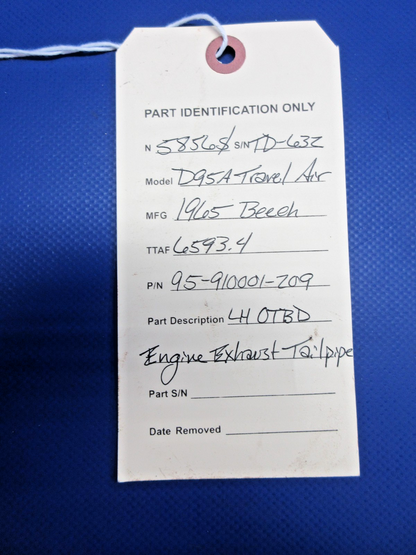 PART IDENTIFICATION ONLY
N 5856S S/N TD-632
Model D95A Travel Air
MFG 1965 Beech
TTAF 6593.4
P/N 95-910001-209
Part Description LH OTBD
Engine Exhaust Tailpipe
Part S/N
Date Removed